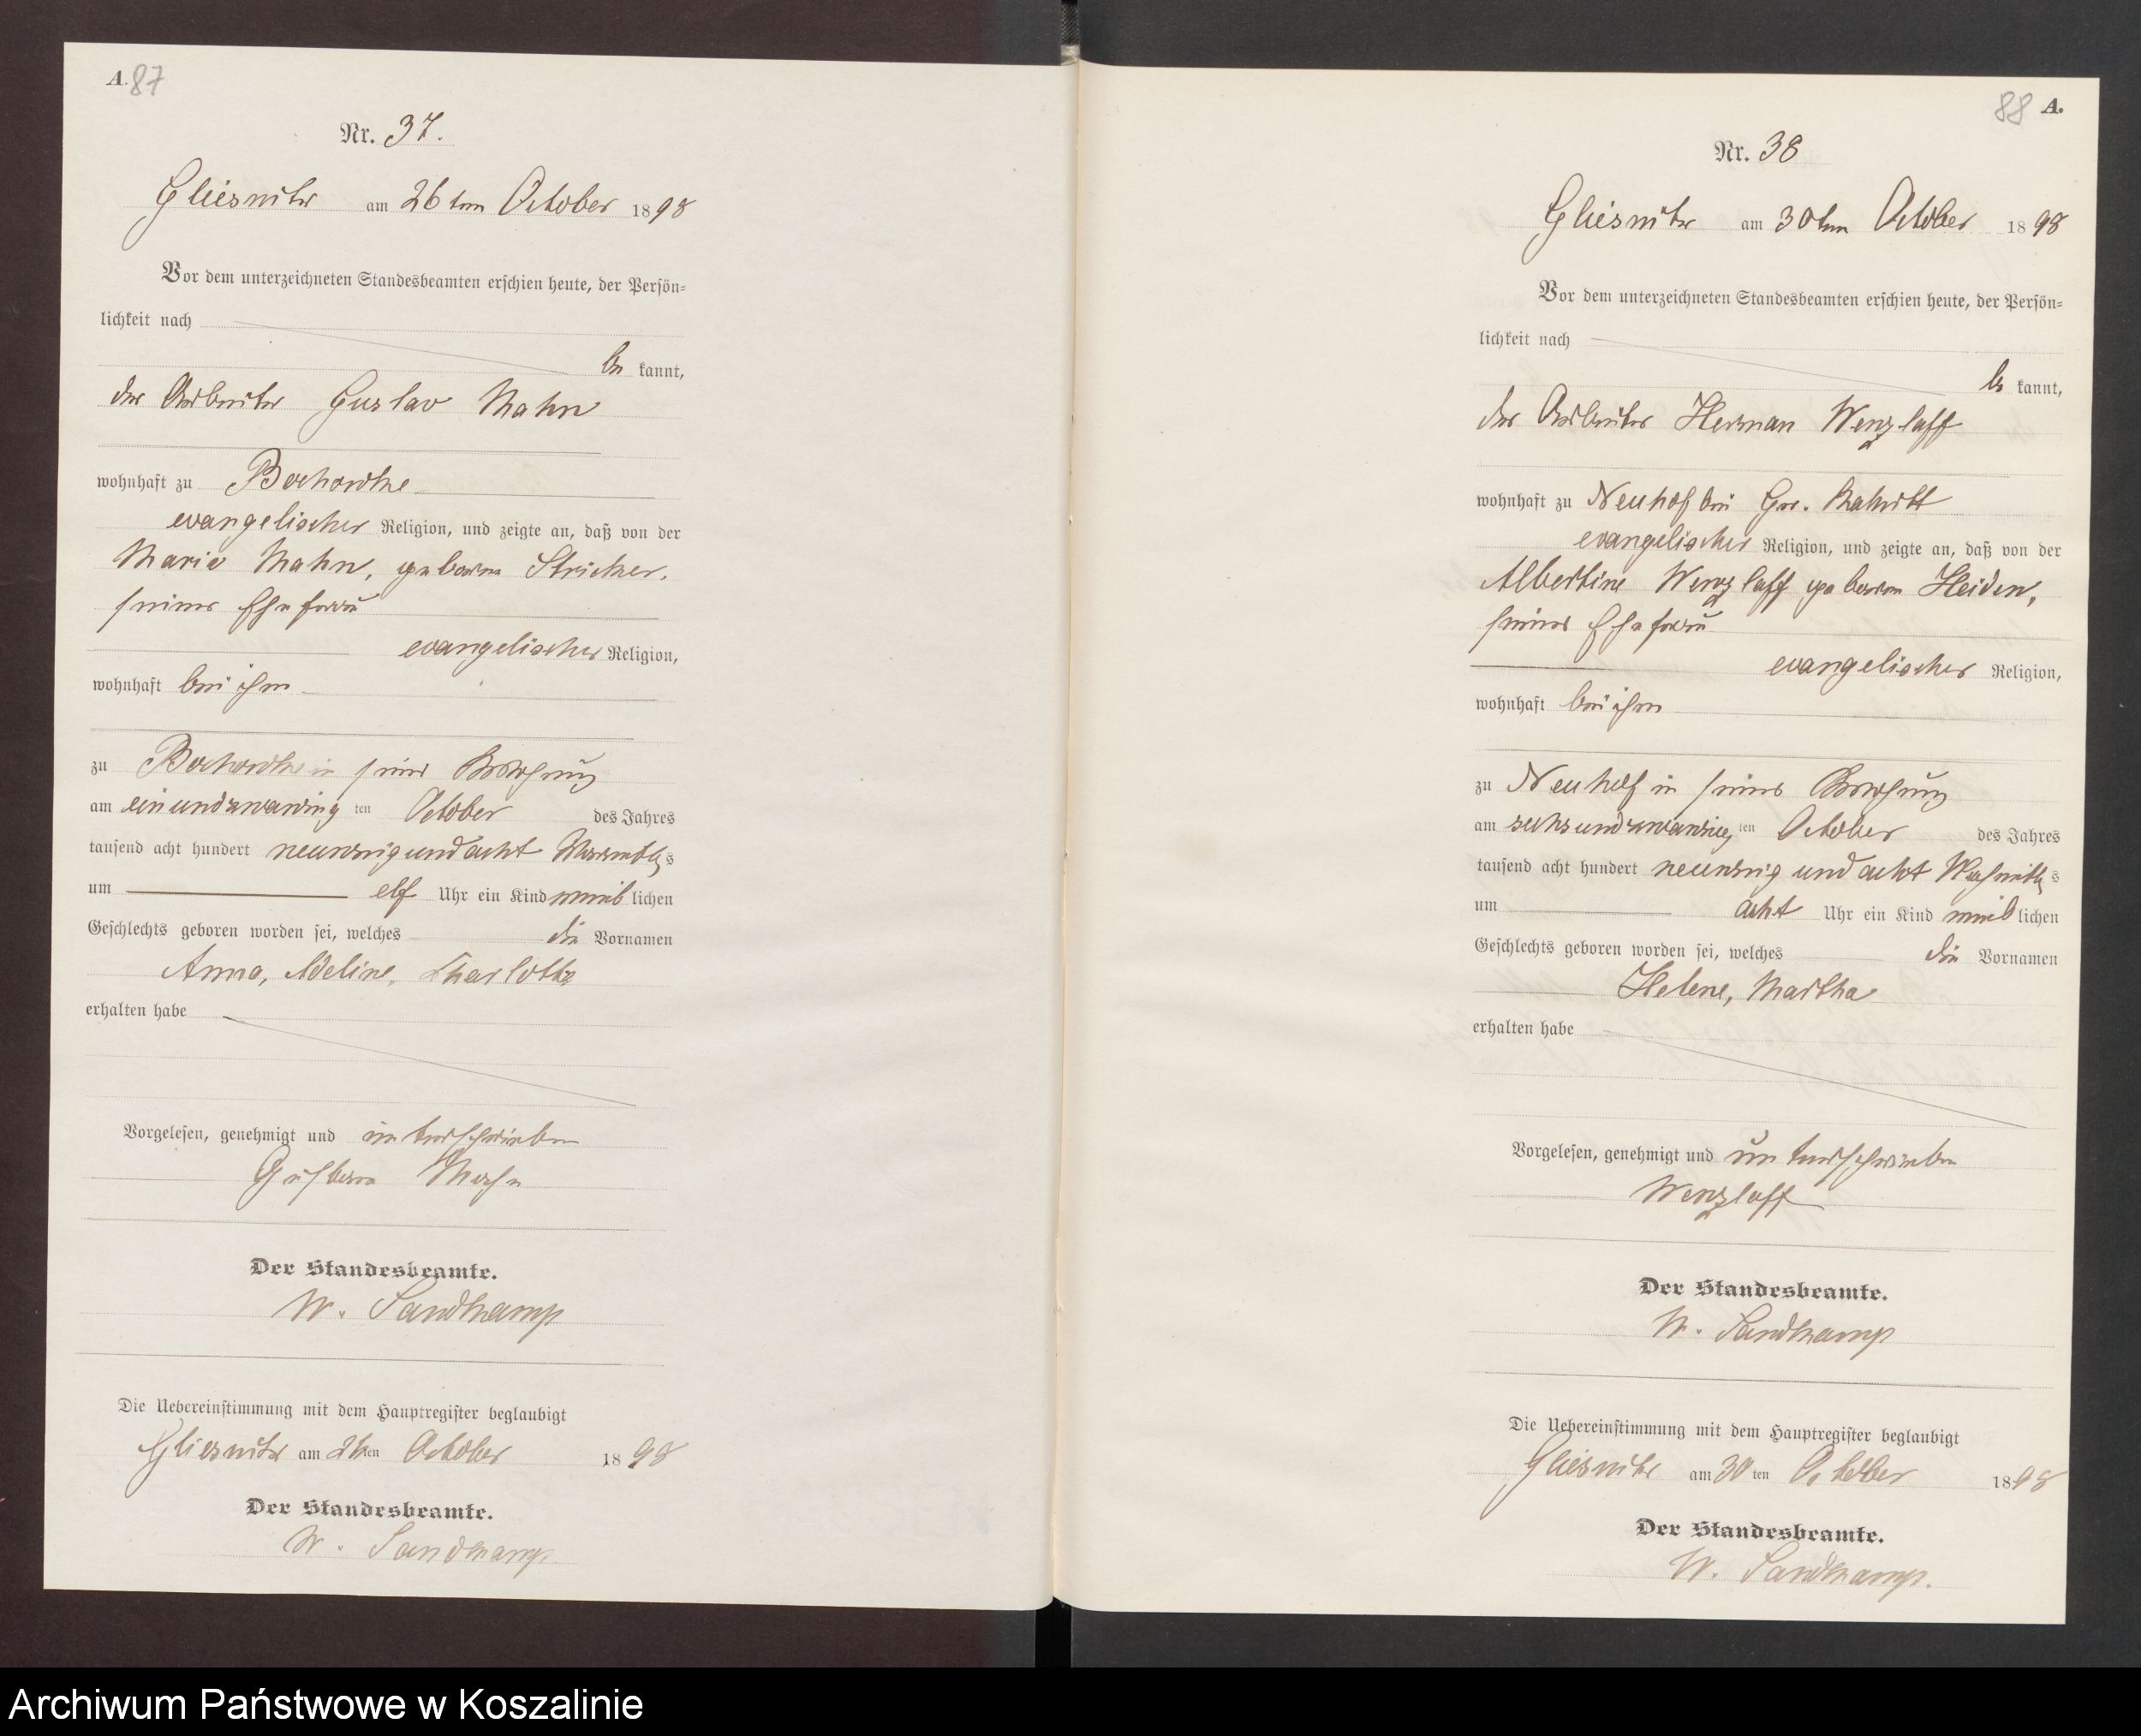 A. 87
Nr. 37.
Gliesnitz am 26ten October 1898
Vor dem unterzeichneten Standesbeamten erschien heute, der Persön-
lichkeit nach
be kannt,
der Arbeiter Gustav Mahn
wohnhaft zu
evangelischer Religion, und zeigte an, daß von der
Marie Mahn, geboren Stricker,
seiner Ehefrau
evangelischer Religion,
wohnhaft bei ihm
zu in seiner Wohnung
am einundzwanzig ten October des Jahres
tausend acht hundert neunzig und acht Vormittags
um elf Uhr ein Kind weiblichen
Geschlechts geboren worden sei, welches die Vornamen
Anna, Adeline, Charlotte
erhalten habe
Vorgelesen, genehmigt und unterschrieben
Gustav Mahn
Der Standesbeamte.
W. Sandkamp
Die Uebereinstimmung mit dem Hauptregister beglaubigt
Gliesnitz am 26ten October 1898
Der Standesbeamte.
W. Sandkamp.
88 A.
Nr. 38
Gliesnitz am 30ten October 1898
Vor dem unterzeichneten Standesbeamten erschien heute, der Persön-
lichkeit nach
be kannt,
der Arbeiter Herman Wenzlaff
wohnhaft zu Neuhof bei Gr.
evangelischer Religion, und zeigte an, daß von der
Albertine Wenzlaff geboren Heiden,
seiner Ehefrau
evangelischer Religion,
wohnhaft bei ihm
zu Neuhof in seiner Wohnung
am sechsundzwanzig ten October des Jahres
tausend acht hundert neunzig und acht Nachmittags
um acht Uhr ein Kind weiblichen
Geschlechts geboren worden sei, welches die Vornamen
Helene, Martha
erhalten habe
Vorgelesen, genehmigt und unterschrieben
Wenzlaff
Der Standesbeamte.
W. Sandkamp
Die Uebereinstimmung mit dem Hauptregister beglaubigt
Gliesnitz am 30 ten October 1898
Der Standesbeamte.
W. Sandkamp.
Archiwum Państwowe w Koszalinie